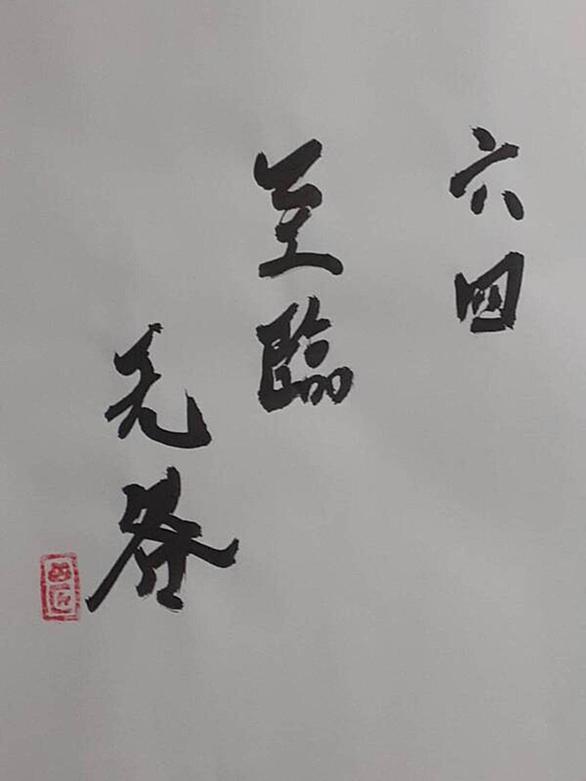 六四
至臨
无咎